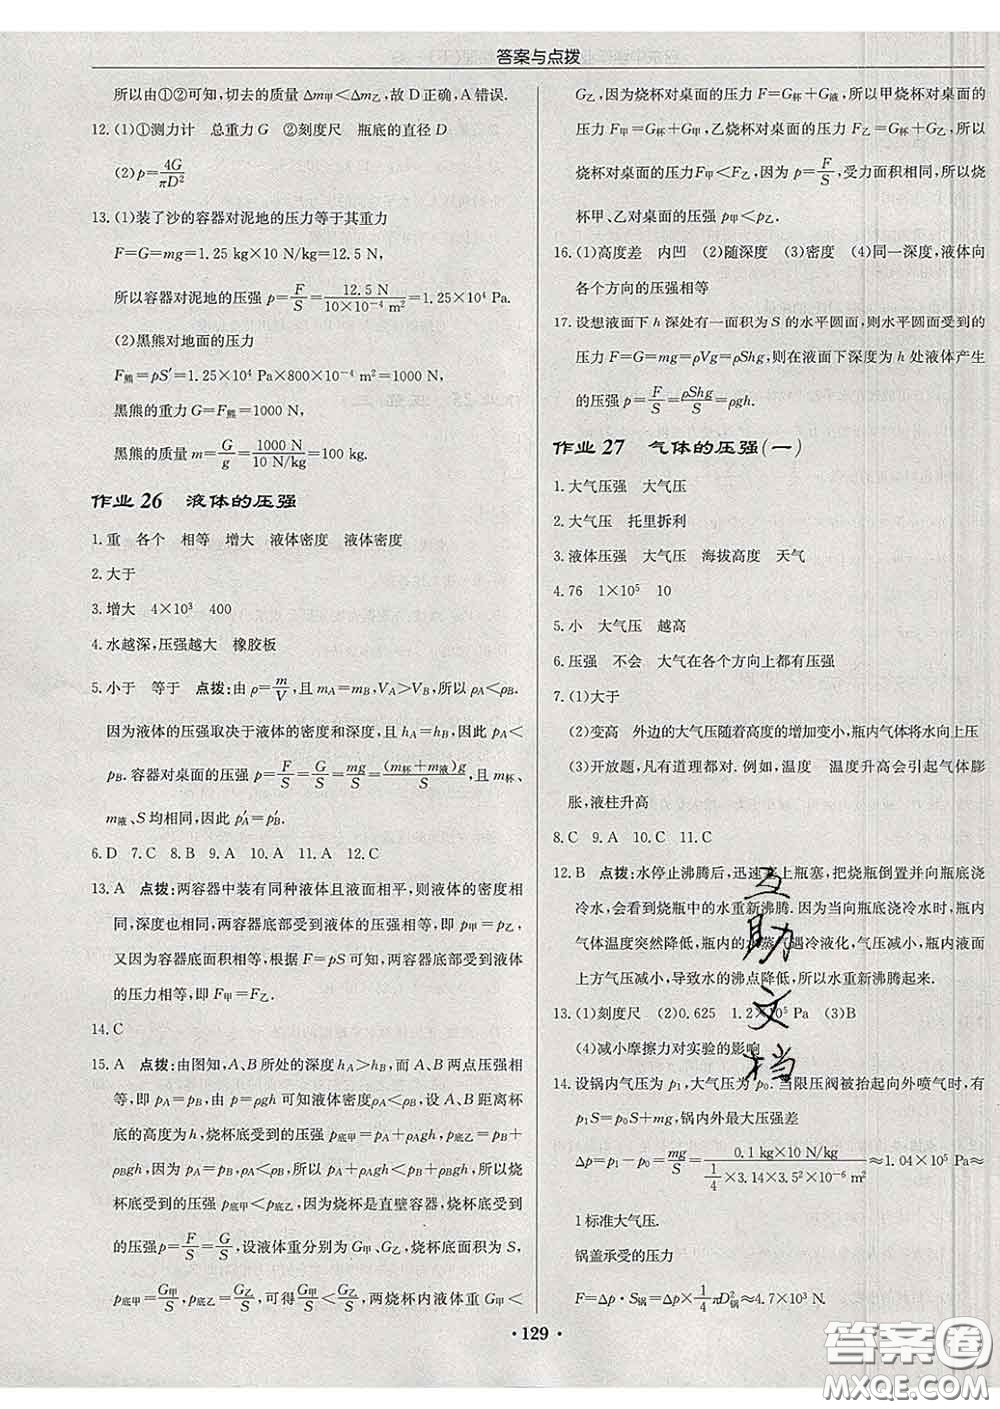 答案与点拨
所以由①②可知,切去的质量 Δm甲＜Δm乙,故 D 正确,A 错误.
12.(1)①测力计　总重力 G　②刻度尺　瓶底的直径 D
(2)p=4G/πD²
13.(1)装了沙的容器对泥地的压力等于其重力
F=G=mg=1.25 kg×10 N/kg=12.5 N,
所以容器对泥地的压强 p=F/S=12.5 N/(10×10⁻⁴ m²)=1.25×10⁴ Pa.
(2)黑熊对地面的压力
F熊=pS′=1.25×10⁴ Pa×800×10⁻⁴ m²=1000 N,
黑熊的重力 G=F熊=1000 N,
黑熊的质量 m=G/g=1000 N/(10 N/kg)=100 kg.
作业 26　液体的压强
1.重　各个　相等　增大　液体密度　液体密度
2.大于
3.增大　4×10³　400
4.水越深,压强越大　橡胶板
5.小于　等于　点拨:由 ρ=m/V,且 mA=mB,VA＞VB,所以 ρA＜ρB.
因为液体的压强取决于液体的密度和深度,且 hA=hB,因此 pA＜
pB.容器对桌面的压强 p=F/S=G/S=mg/S=(m杯+m液)g/S,且 m杯、
m液、S 均相同,因此 p′A=p′B.
6.D　7.C　8.B　9.A　10.A　11.A　12.C
13.A　点拨:两容器中装有同种液体且液面相平,则液体的密度相
同,深度也相同,两容器底部受到液体的压强相等,即 p甲=p乙,
又因为容器底面积相等,根据 F=pS 可知,两容器底部受到液体
的压力相等,即 F甲=F乙.
14.C
15.A　点拨:由图知,A、B 所处的深度 hA＞hB,而 A、B 两点压强相
等,即 pA=pB,由 p=ρgh 可知液体密度ρA＜ρB,设 A、B 距离杯
底的高度为 h,烧杯底受到的压强 p底甲=pA+ρAgh,p底乙=pB+
ρBgh,因为 pA=pB,ρA＜ρB,所以 pA+ρAgh＜pB+ρBgh,所以烧
杯底受到的压强 p底甲＜p底乙,因为烧杯是直壁容器,烧杯底受到
的压强 p=F/S=G/S,设液体重分别为 G甲、G乙,烧杯底面积为 S,
p底甲=G甲/S,p底乙=G乙/S,可得G甲/S＜G乙/S,两烧杯内液体重 G甲＜
G乙,因为烧杯对桌面的压力 F=G杯+G液,所以甲烧杯对桌面的
压力 F甲=G杯+G甲,乙烧杯对桌面的压力 F乙=G杯+G乙,所以
烧杯对桌面的压力F甲＜F乙,因为 p=F/S,受力面积相同,所以烧
杯甲、乙对桌面的压强 p甲＜p乙.
16.(1)高度差　内凹　(2)随深度　(3)密度　(4)同一深度,液体向
各个方向的压强相等
17.设想液面下 h 深处有一面积为 S 的水平圆面,则水平圆面受到的
压力 F=G=mg=ρVg=ρShg,则在液面下深度为 h 处液体产生
的压强 p=F/S=ρShg/S=ρgh.
作业 27　气体的压强(一)
1.大气压强　大气压
2.大气压　托里拆利
3.液体压强　大气压　海拔高度　天气
4.76　1×10⁵　10
5.小　大气压　越高
6.压强　不会　大气在各个方向上都有压强
7.(1)大于
(2)变高　外边的大气压随着高度的增加变小,瓶内气体将水向上压
(3)开放题,凡有道理都对. 例如,温度　温度升高会引起气体膨
胀,液柱升高
8.C　9.A　10.C　11.C
12.B　点拨:水停止沸腾后,迅速塞上瓶塞,把烧瓶倒置并向瓶底浇
冷水,会看到烧瓶中的水重新沸腾. 因为当向瓶底浇冷水时,瓶内
气体温度突然降低,瓶内的水蒸气遇冷液化,气压减小,瓶内液面
上方气压减小,导致水的沸点降低,所以水重新沸腾起来.
13.(1)刻度尺　(2)0.625　1.2×10⁵ Pa　(3)B
(4)减小摩擦力对实验的影响
14.设锅内气压为 p₁,大气压为 p₀. 当限压阀被抬起向外喷气时,有
p₁S=p₀S+mg,锅内外最大压强差
Δp=p₁-p₀=mg/S=0.1 kg×10 N/kg/(1/4×3.14×3.5²×10⁻⁶ m²)≈1.04×10⁵ Pa≈
1 标准大气压.
锅盖承受的压力
F=Δp·S锅=Δp×1/4πD²锅≈4.7×10³ N.
互助文档
·129·
答案圈
MXQE.COM